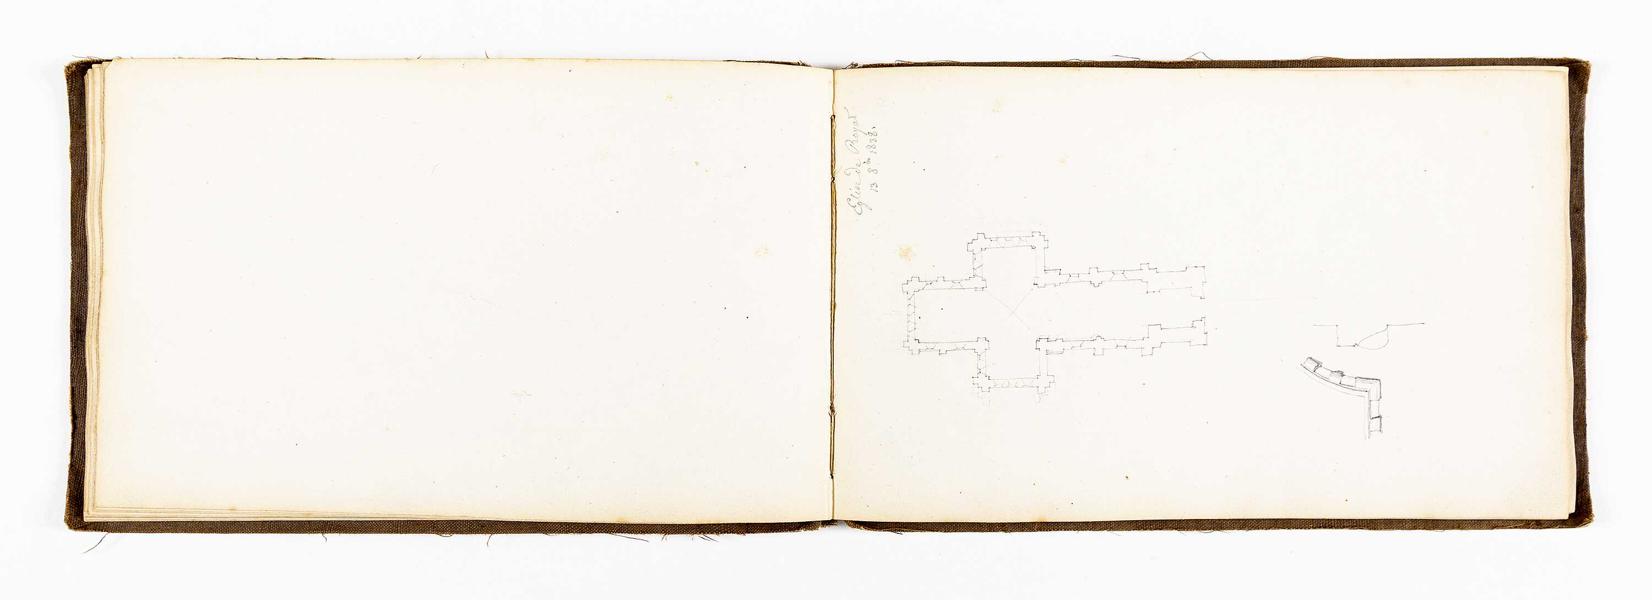 Eglise de Royat
13 8bre 1838.